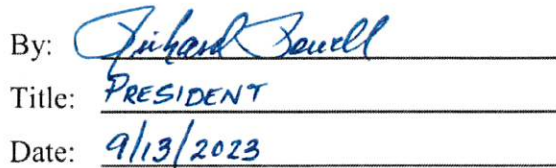 By: Richard Powell
Title: PRESIDENT
Date: 9/13/2023